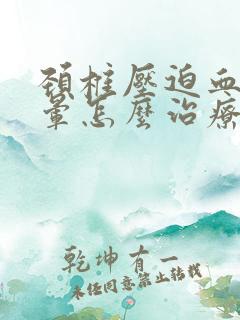 頸椎壓迫血
暈怎麼治療
乾坤有一
未經同意禁止轉載